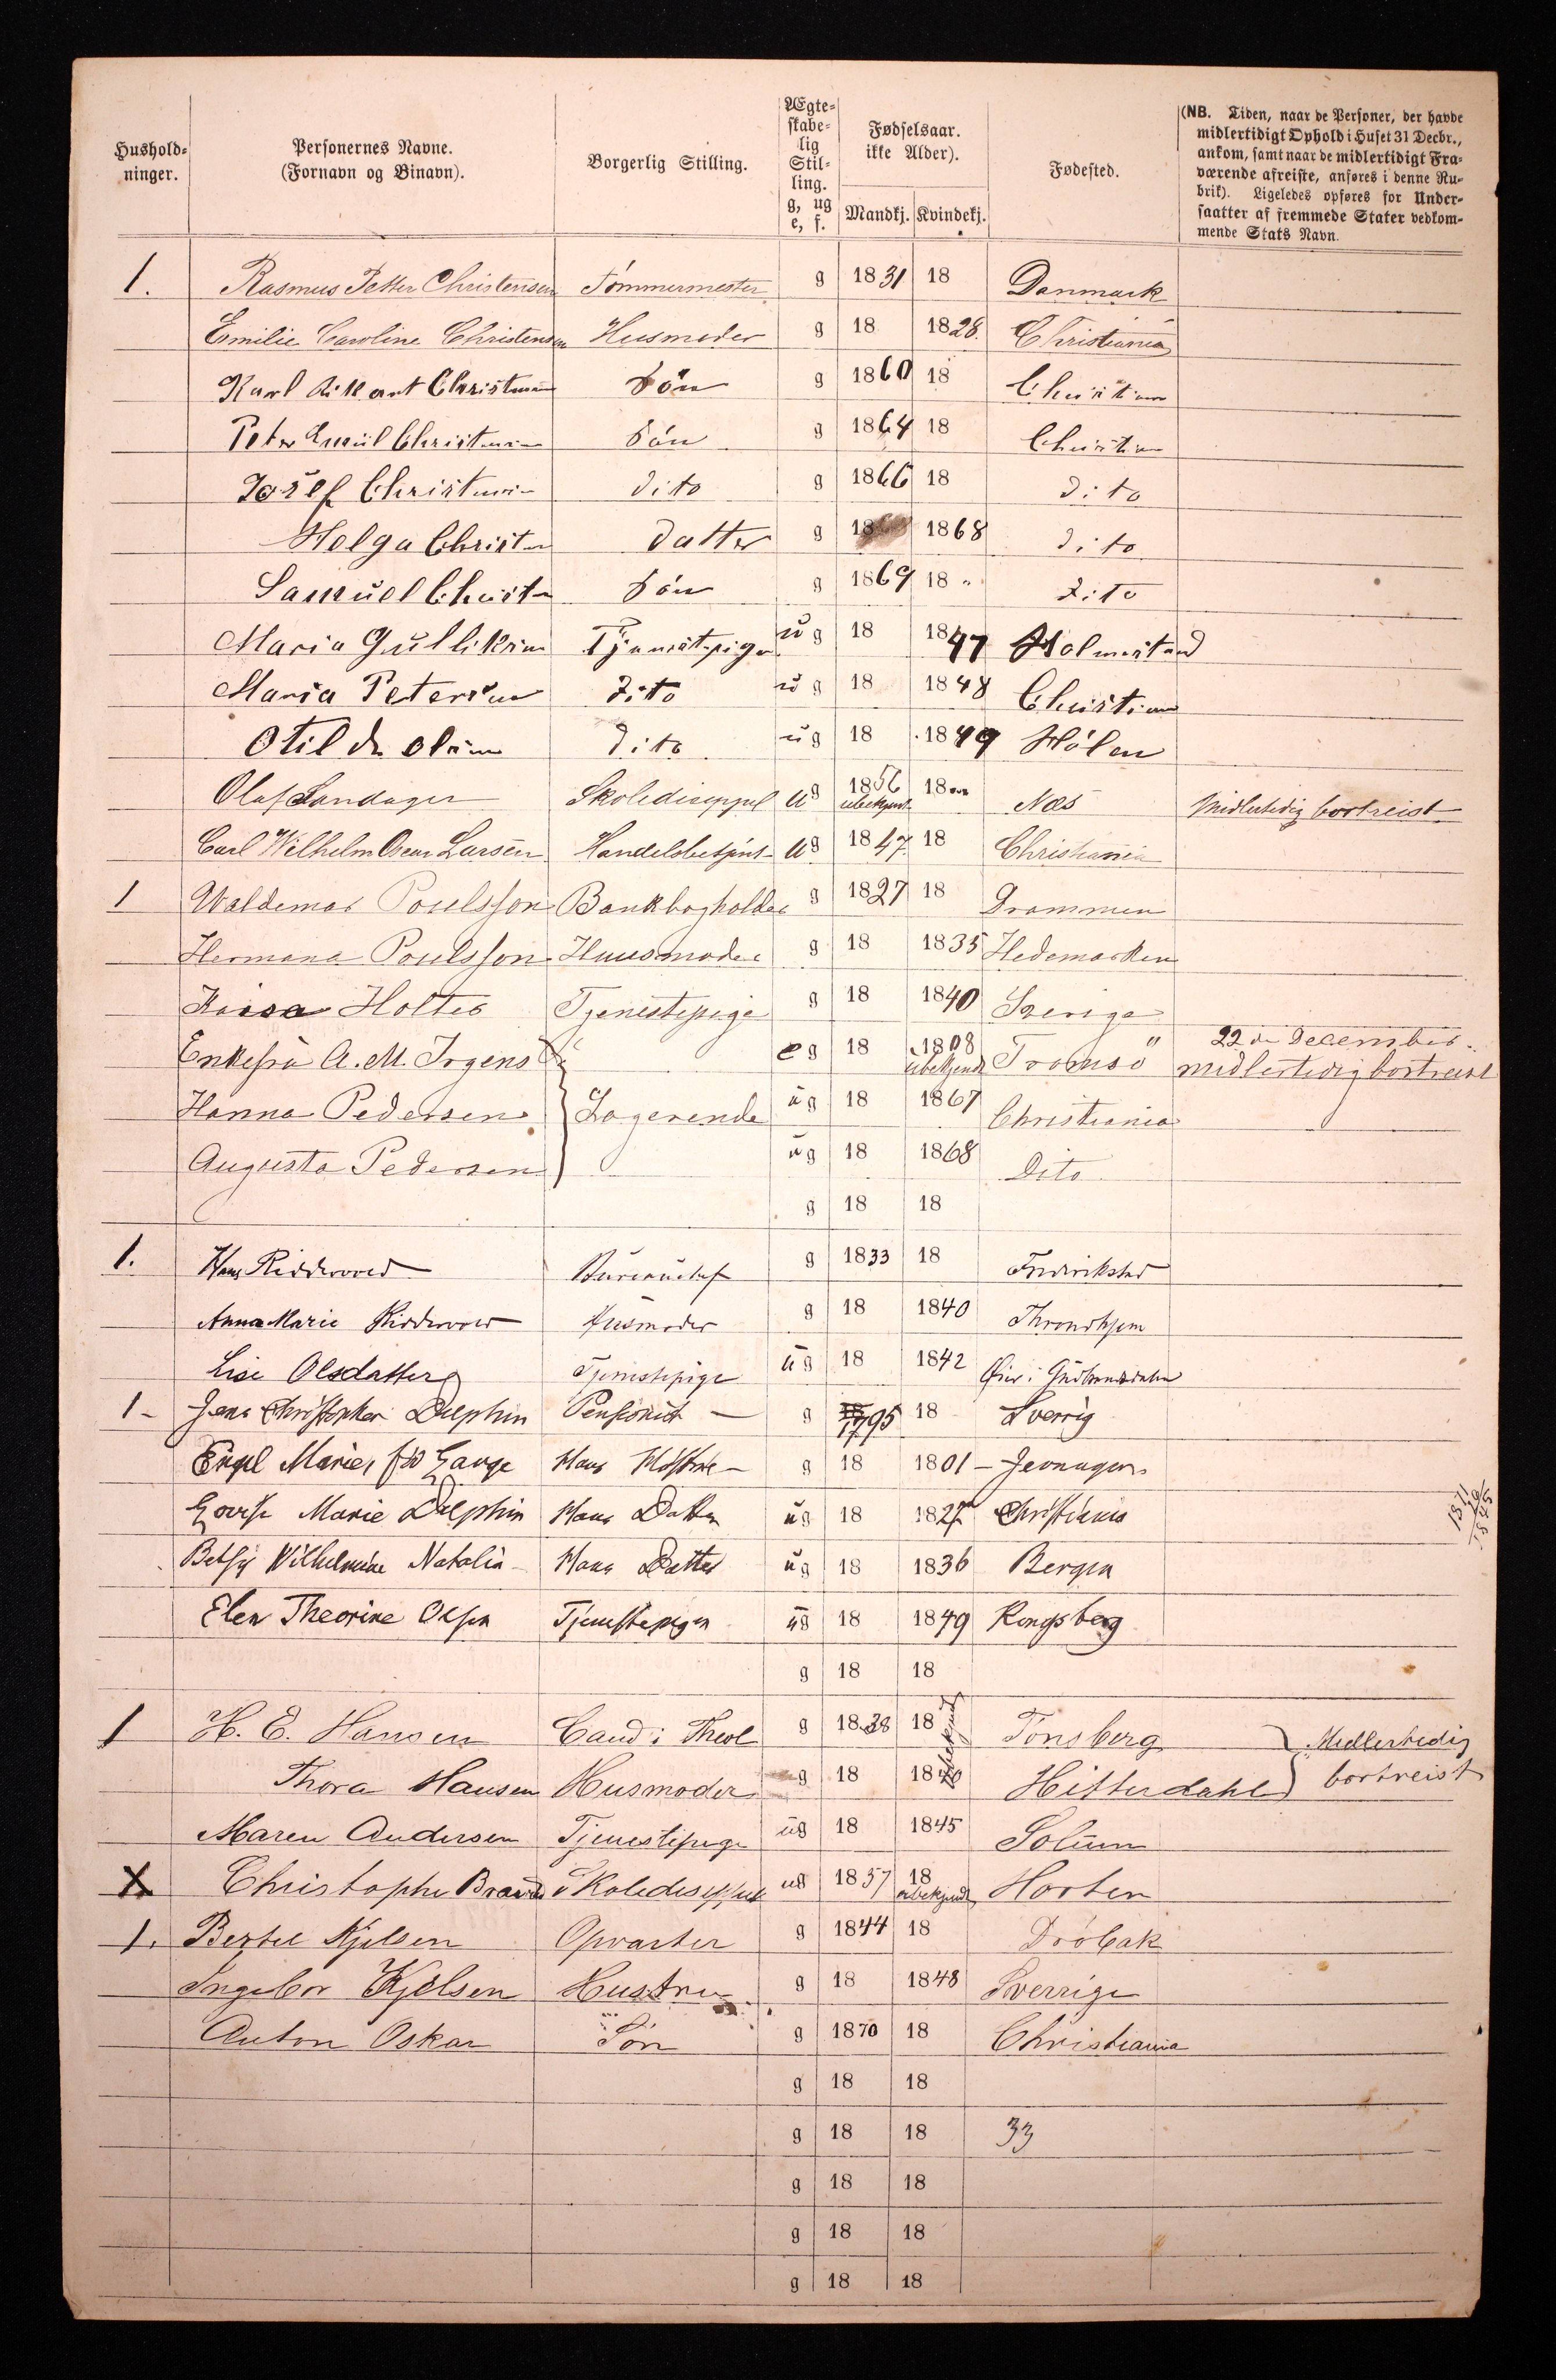 Hushold-
ninger.
Personernes Navne.
(Fornavn og Binavn).
Borgerlig Stilling.
Ægte-
skabe-
lig
Stil-
ling.
g, ug
e, f.
Fødselsaar.
ikke Alder).
Mandkj. Kvindekj.
Fødested.
(NB. Tiden, naar de Personer, der havde
midlertidigt Ophold i Huset 31 Decbr.,
ankom, samt naar de midlertidigt Fra-
værende afreiste, anføres i denne Ru-
brik). Ligeledes opføres for Under-
saatter af fremmede Stater vedkom-
mende Stats Navn.
1. Rasmus Petter Christensen Tömmermester g 1831 18 Danmark
Emilie Caroline Christensen Husmoder g 18 1828. Christiania
Karl Christensen Sön g 1860 18 Christiania
Peter Emiil Christensen Sön g 1864 18 Christiania
Josef Christensen dito g 1866 18 dito
Helga Christen datter g 18 1868 dito
Samuel Christen Sön g 1869 18 " Dito
Maria Gulliksen Tjenestepige ug 18 1847 Holmestrand
Maria Petersen Dito ug 18 1848 Christiania
Otilde Olsen dito ug 18 1849 Hölen
Olaf Landager Skolediscippel ug 1856 ubekjendt 18 Næs Midlertidig bortreist
Carl Wilhelm Oscar Larsen Handelsbetjent ug 1847 18 Christiania
1 Waldemar Poulsson Bankbogholder g 1827 18 Drammen
Hermana Poulsson Huusmoder g 18 1835 Hedemarken
Kaisa Holter Tjenestepige g 18 1840 Sverige
22 de December.
Enkefru A. M. Irgens eg 18 1808 ubekjendt Tromsö midlertidig bortreist
Hanna Pedersen Logerende ug 18 1867 Christiania
Augusta Pedersen ug 18 1868 Dito
g 18 18
1. Hans Riddervold Bureauchef g 1833 18 Fredrikstad
Anna Marie Riddervold Husmoder g 18 1840 Throndhjem
Lise Olsdatter Tjenestepige ug 18 1842 Öier i Gudbrandsdalen
1 - Jens Christopher Delphin Pensionist — g 1795 18 Sverrig
Engel Marie, Hans Hustrue — g 18 1801 -
Marie Delphin Hans Datter ug 18 1827 Christiania
Betsy Wilhelmine Natalia - Hans Datter ug 18 1836 Bergen
Elen Theorine Olsen Tjenestepigen ug 18 1849 Kongsberg
1871
26
1845
g 18 18
1 H. E. Hansen Cand: Theol g 1838 18 Tönsberg Midlertidig
Thora Hansen Husmoder g 18 1840 ubekjendt Hitterdahl bortreist
Maren Andersen Tjenestepige ug 18 1845 Solum
X Christopher Skolediscippel ug 1857 18 ubekjendt Horten
1. Bertel Kjelsen Opvarter g 1844 18 Dröbak
Ingebor Kjelsen Hustru g 18 1848 Sverrige
Anton Oskar Sön g 1870 18 Christiania
g 18 18
g 18 18 33
g 18 18
g 18 18
g 18 18